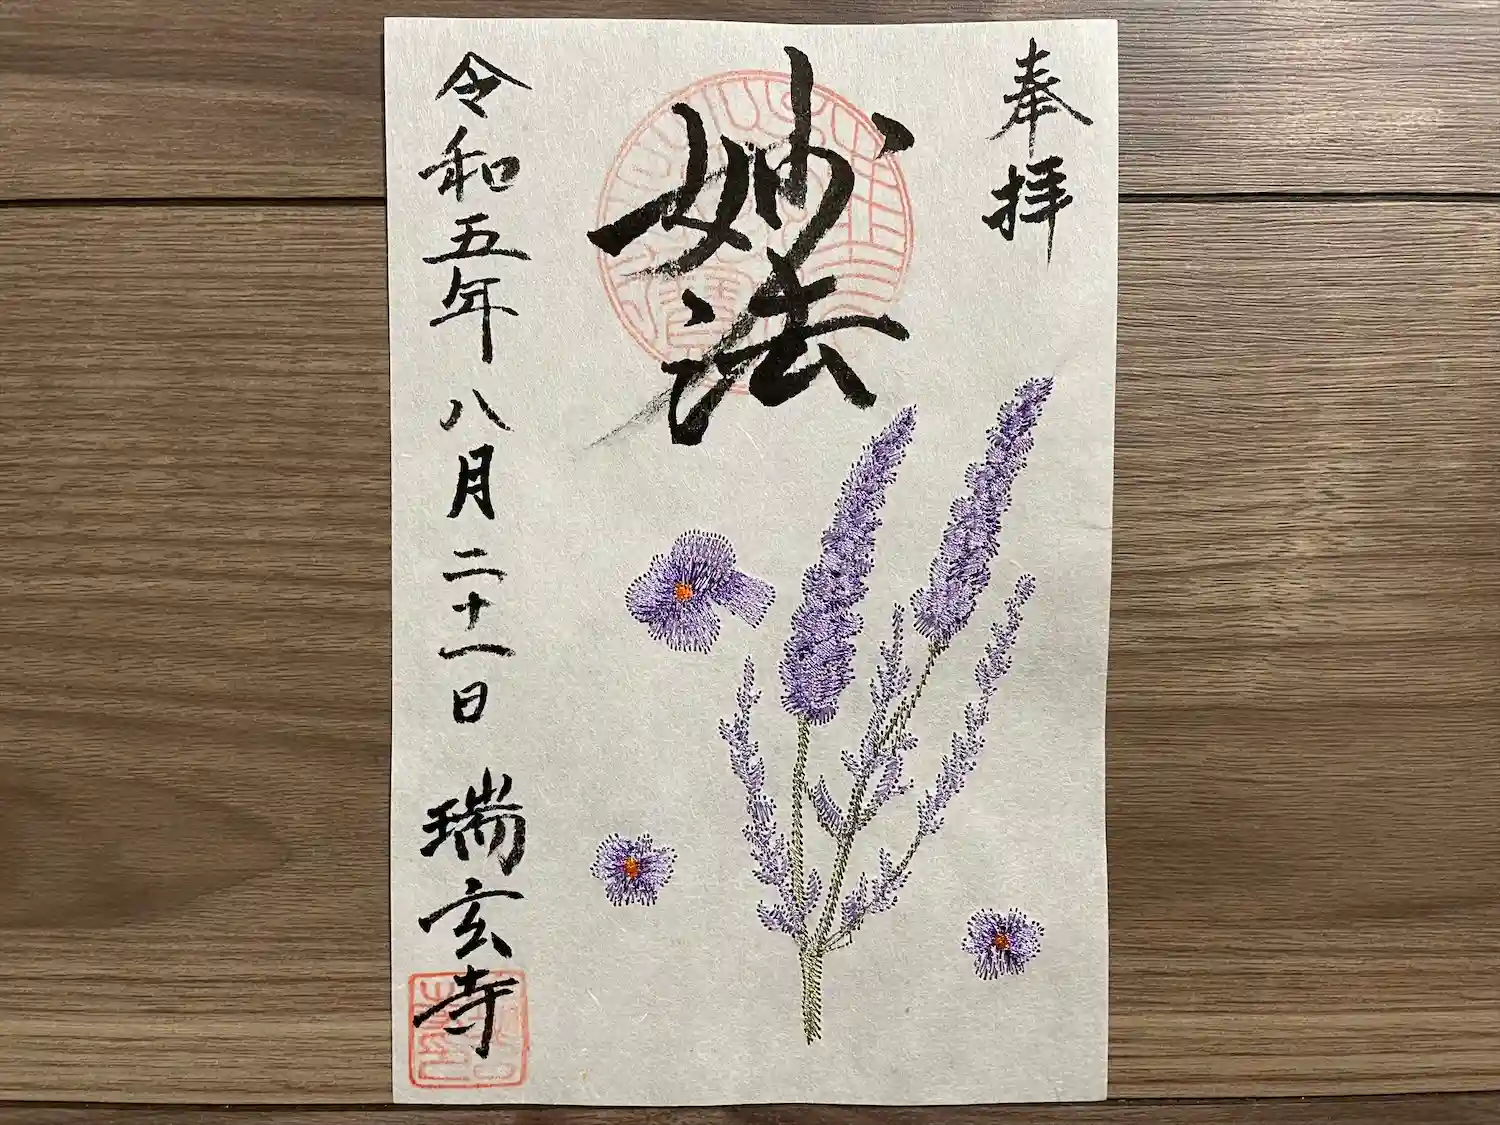 奉拝
妙法
令和五年八月二十一日 瑞玄寺